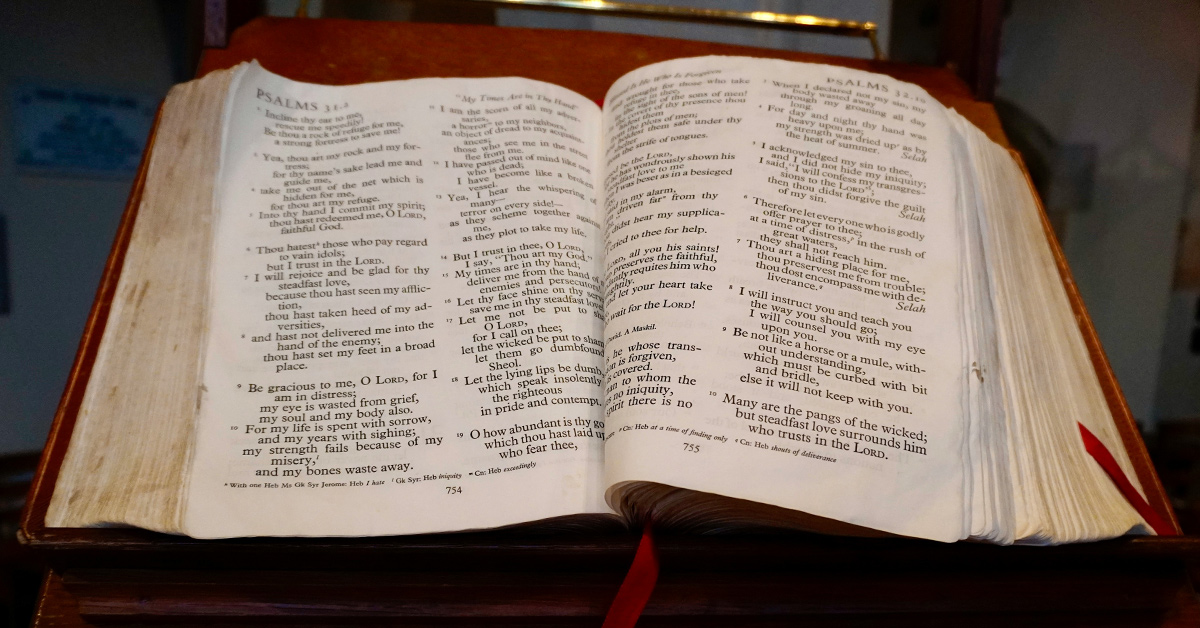 PSALMS 31.2
Incline thy ear to me,
rescue me speedily!
Be thou a rock of refuge for me,
a strong fortress to save me!
3 Yea, thou art my rock and my for-
tress;
for thy name's sake lead me and
guide me,
4 take me out of the net which is
hidden for me,
for thou art my refuge.
5 Into thy hand I commit my spirit;
thou hast redeemed me, O LORD,
faithful God.
6 Thou hatest those who pay regard
to vain idols;
but I trust in the LORD.
7 I will rejoice and be glad for thy
steadfast love,
because thou hast seen my afflic-
tion,
thou hast taken heed of my ad-
versities,
8 and hast not delivered me into the
hand of the enemy;
thou hast set my feet in a broad
place.
9 Be gracious to me, O LORD, for I
am in distress;
my eye is wasted from grief,
my soul and my body also.
10 For my life is spent with sorrow,
and my years with sighing;
my strength fails because of my
misery,
and my bones waste away.
"My Times Are in Thy Hand"
11 I am the scorn of all my adver-
saries,
a horror to my neighbors,
an object of dread to my acquaint-
ances;
those who see me in the street
flee from me.
12 I have passed out of mind like one
who is dead;
I have become like a broken
vessel.
13 Yea, I hear the whispering of
many—
terror on every side!—
as they scheme together against
me,
as they plot to take my life.
14 But I trust in thee, O LORD,
I say, "Thou art my God."
15 My times are in thy hand;
deliver me from the hand of
enemies and persecutors
16 Let thy face shine on thy
save me in thy steadfast love
17 Let me not be put to
O LORD,
for I call on thee;
let the wicked be put to sham
let them go dumbfound
Sheol.
18 Let the lying lips be dumb
which speak insolently
the righteous
in pride and contempt.
19 O how abundant is thy go
which thou hast laid u
who fear thee,
With one Heb Ms Gk Syr Jerome: Heb I hate Gk Syr: Heb iniquity Cn: Heb exceedingly
754
He Who Is Forgiven
wrought for those who take
refuge in thee,
in the sight of the sons of men!
covert of thy presence thou
hidest them
the plots of men;
them safe under thy
from the strife of tongues.
be the LORD,
he has wondrously shown his
steadfast love to me
I was beset as in a besieged
in my alarm,
driven far" from thy
didst hear my supplica-
cried to thee for help.
LORD, all you his saints!
preserves the faithful,
requites him who
let your heart take
wait for the LORD!
David. A Maskil.
he whose trans-
on is forgiven,
is covered.
to whom the
no iniquity,
spirit there is no
PSALMS 32.10
3 When I declared not my sin, my
body wasted away
through my groaning all day
long.
4 For day and night thy hand was
heavy upon me;
my strength was dried up as by
the heat of summer. Selah
5 I acknowledged my sin to thee,
and I did not hide my iniquity;
I said, "I will confess my transgres-
sions to the LORD";
then thou didst forgive the guilt
of my sin. Selah
6 Therefore let every one who is godly
offer prayer to thee;
at a time of distress, in the rush of
great waters,
they shall not reach him.
7 Thou art a hiding place for me,
thou preservest me from trouble;
thou dost encompass me with de-
liverance. Selah
8 I will instruct you and teach you
the way you should go;
I will counsel you with my eye
upon you.
9 Be not like a horse or a mule, with-
out understanding,
which must be curbed with bit
and bridle,
else it will not keep with you.
10 Many are the pangs of the wicked;
but steadfast love surrounds him
who trusts in the LORD.
Cn: Heb at a time of finding only Cn: Heb shouts of deliverance
755